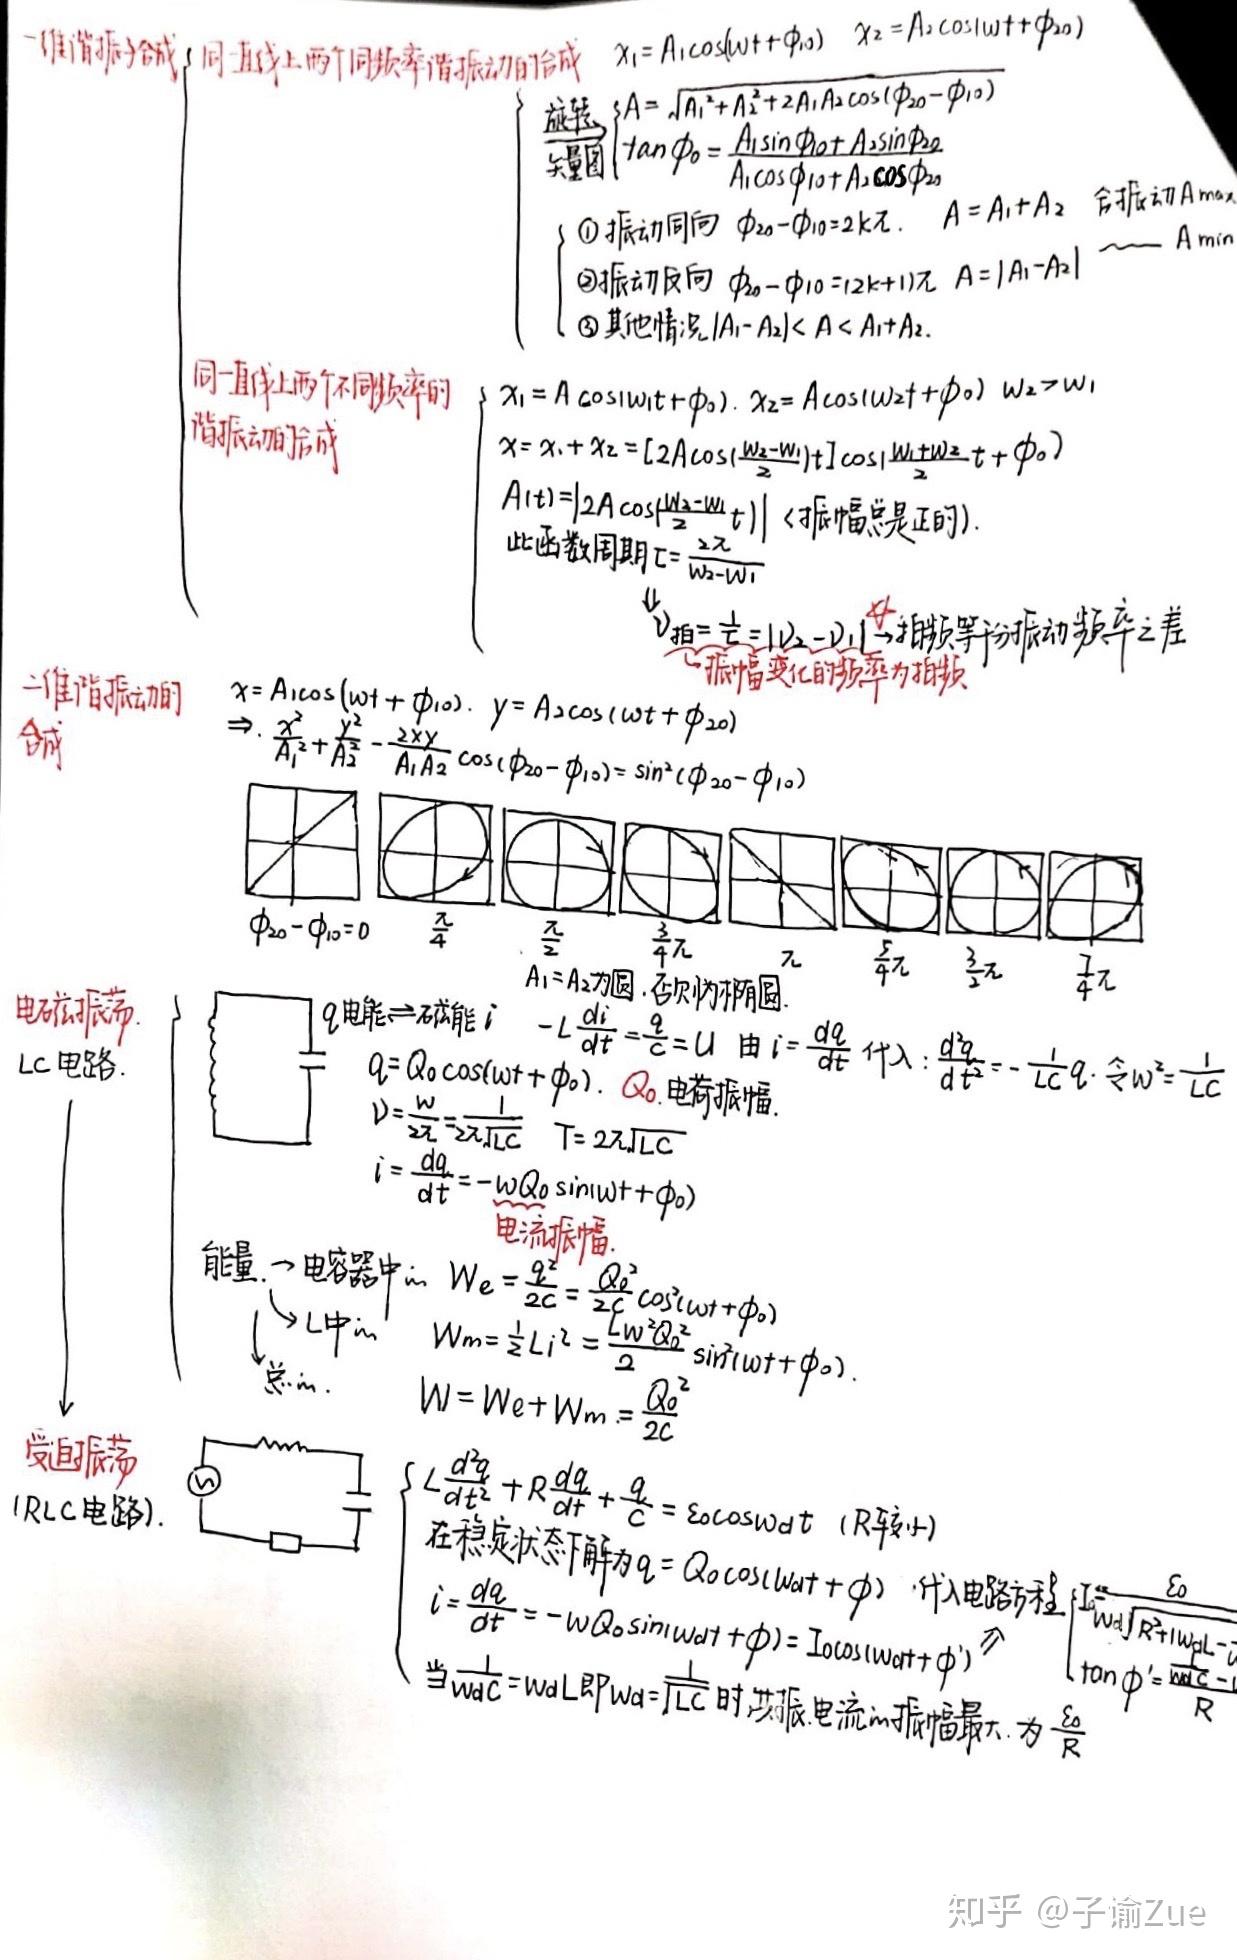 一维谐振子合成
同一直线上两个同频率谐振动的合成 x₁=A₁cos(ωt+φ₁₀) x₂=A₂cos(ωt+φ₂₀)
旋转矢量图
A=√(A₁²+A₂²+2A₁A₂cos(φ₂₀-φ₁₀))
tanφ₀=(A₁sinφ₁₀+A₂sinφ₂₀)/(A₁cosφ₁₀+A₂cosφ₂₀)
①振动同向 φ₂₀-φ₁₀=2kπ. A=A₁+A₂ 合振动Amax
②振动反向 φ₂₀-φ₁₀=(2k+1)π A=|A₁-A₂| —— Amin
③其他情况 |A₁-A₂|<A<A₁+A₂.
同一直线上两个不同频率的
谐振动的合成
x₁=Acos(ω₁t+φ₀). x₂=Acos(ω₂t+φ₀) ω₂>ω₁
x=x₁+x₂=[2Acos((ω₂-ω₁)/2)t]cos((ω₁+ω₂)/2 t+φ₀)
A(t)=|2Acos((ω₂-ω₁)/2 t)| (振幅总是正的).
此函数周期τ=2π/(ω₂-ω₁)
⇓
ν拍=1/τ=|ν₂-ν₁| → 拍频等于分振动频率之差
振幅变化的频率为拍频
二维谐振动的
合成
x=A₁cos(ωt+φ₁₀). y=A₂cos(ωt+φ₂₀)
⇒. x²/A₁²+y²/A₂²-2xy/(A₁A₂)cos(φ₂₀-φ₁₀)=sin²(φ₂₀-φ₁₀)
φ₂₀-φ₁₀=0 π/4 π/2 3/4π π 5/4π 3/2π 7/4π
A₁=A₂为圆.否则为椭圆.
电磁振荡.
LC电路.
q电能⇌磁能i -L di/dt=q/c=U 由i=dq/dt代入: d²q/dt²=-1/LC q. 令ω²=1/LC
q=Q₀cos(ωt+φ₀). Q₀.电荷振幅.
ν=ω/2π=1/(2π√LC) T=2π√LC
i=dq/dt=-ωQ₀sin(ωt+φ₀)
电流振幅.
能量.→电容器中in We=q²/2C=Q₀²/2C cos²(ωt+φ₀)
L中in Wm=½Li²=Lω²Q₀²/2 sin²(ωt+φ₀).
总in. W=We+Wm=Q₀²/2C
受迫振荡
(RLC电路).
L d²q/dt²+R dq/dt+q/C=ε₀cosωdt (R较小)
在稳定状态下解为q=Q₀cos(ωdt+φ).代入电路方程
i=dq/dt=-ωQ₀sin(ωdt+φ)=I₀cos(ωdt+φ')
tanφ'=
R
当1/ωdC=ωdL即ωd=1/√LC时共振.电流in振幅最大.为ε₀/R
知乎 @子谕Zue